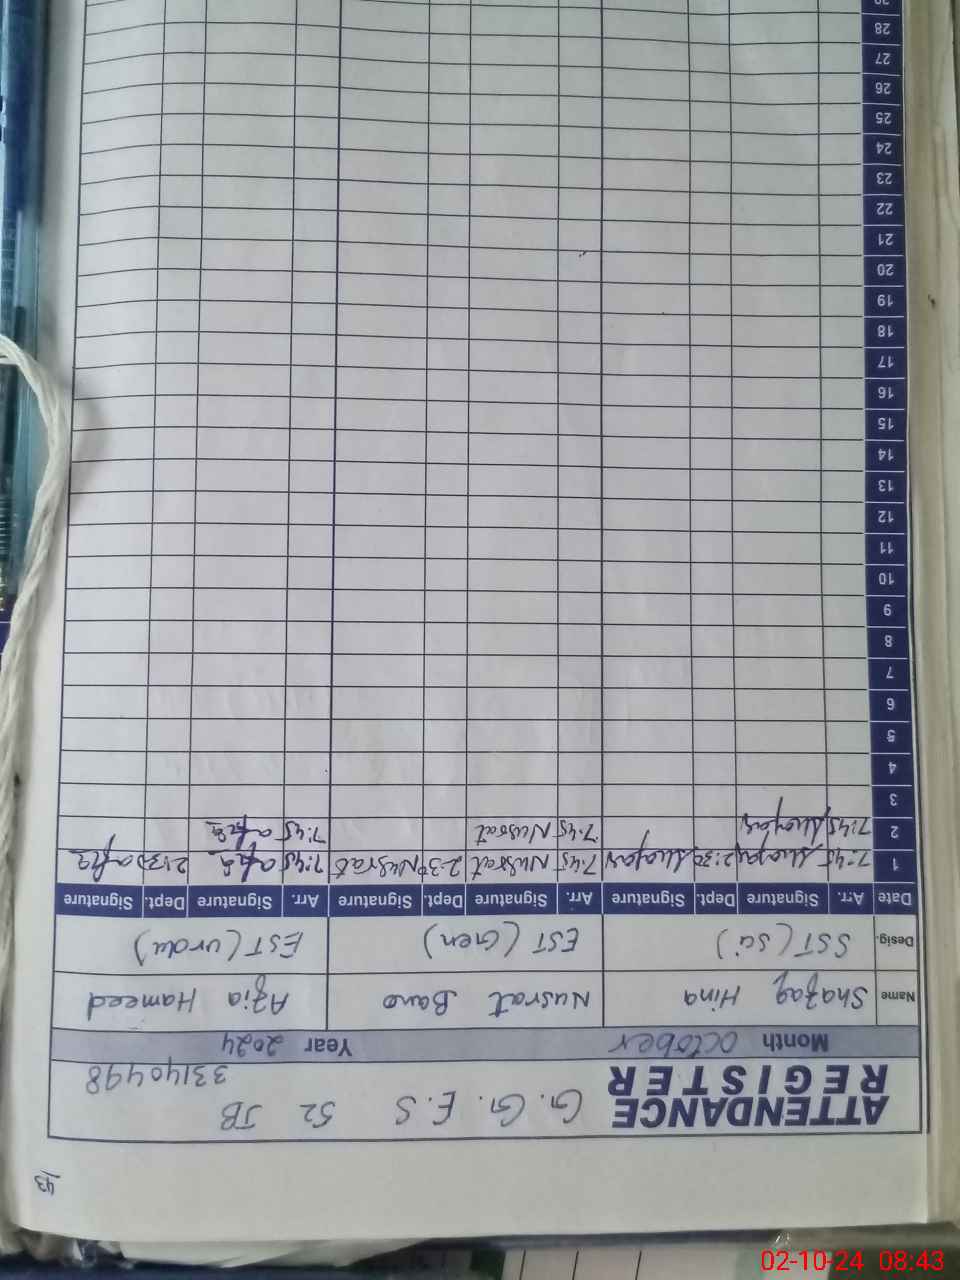 43
ATTENDANCE REGISTER G. G. E. S 52 JB
33140498
Month October Year 2024
Name Shafaq Hina Nusrat Bano Azia Hameed
Desig. SST (Sci) EST (Gen) EST (Urdu)
Date Arr. Signature Dept. Signature Arr. Signature Dept. Signature Arr. Signature Dept. Signature
1 7:45 2:30 7:45 Nusrat 2:30 Nusrat 7:45 2:30
2 7:45 7:45 Nusrat 7:45
3
4
5
6
7
8
9
10
11
12
13
14
15
16
17
18
19
20
21
22
23
24
25
26
27
28
29
02-10-24 08:43